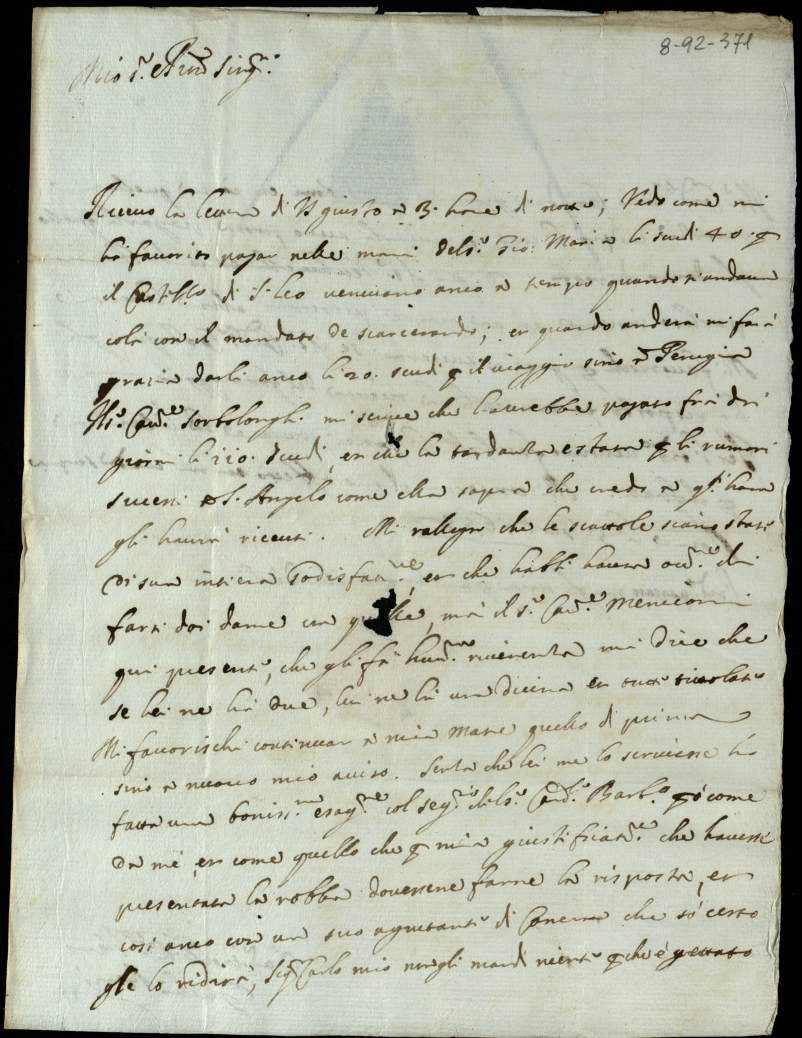 8-92-371
Mio s.r e P.ron sing.r
Ricevo la lettera di VS giusto a 3. hore di notte; Vedo come mi
ha favorito pagar nelle mani del s.r Gio: Maria li scudi 40. p
il Castello di S. Leo venivano anco a tempo quando si andava
colà con il mandato de scarcerando; et quando anderà mi farà
gratia darli anco li 20. scudi p il viaggio sino a Perugia
Il s.r Cav.re Sorbolonghi mi scrive che l'avrebbe pagato frà dui
giorni li 110. scudi, et che la tardanza è stata p li rumori
successi a S. Angelo come ella saprà che credo a q.st' hora
gli havrà ricevuti. Mi rallegro che le scattole siano state
di sua intiera sodisfat.ne, et che habbi havuta occ.ne di
farsi doi dame con quelle, mà il s.r Cav.re Meniconi
qui presente, che gli fà hum.ma riverenza mi dice che
se lei ne hà due, lui ne hà una dicina et tutte titolate
Mi favorischi continuar a mia Madre quello di prima
sino a nuovo mio aviso. Senza che lei me lo scrivesse hò
fatta una boniss.ma esag.ne col seg.rio del s.r Card. Barb.o p ò come
da mè, et come quello che p mia giustificat.ne che havesse
presentata la robba dovessene farne la risposta, et
così anco con un suo agiutante di Camera che sò certo
gle lo ridirà, Sig.r Carlo mio non gli mandi niente p che è gettato